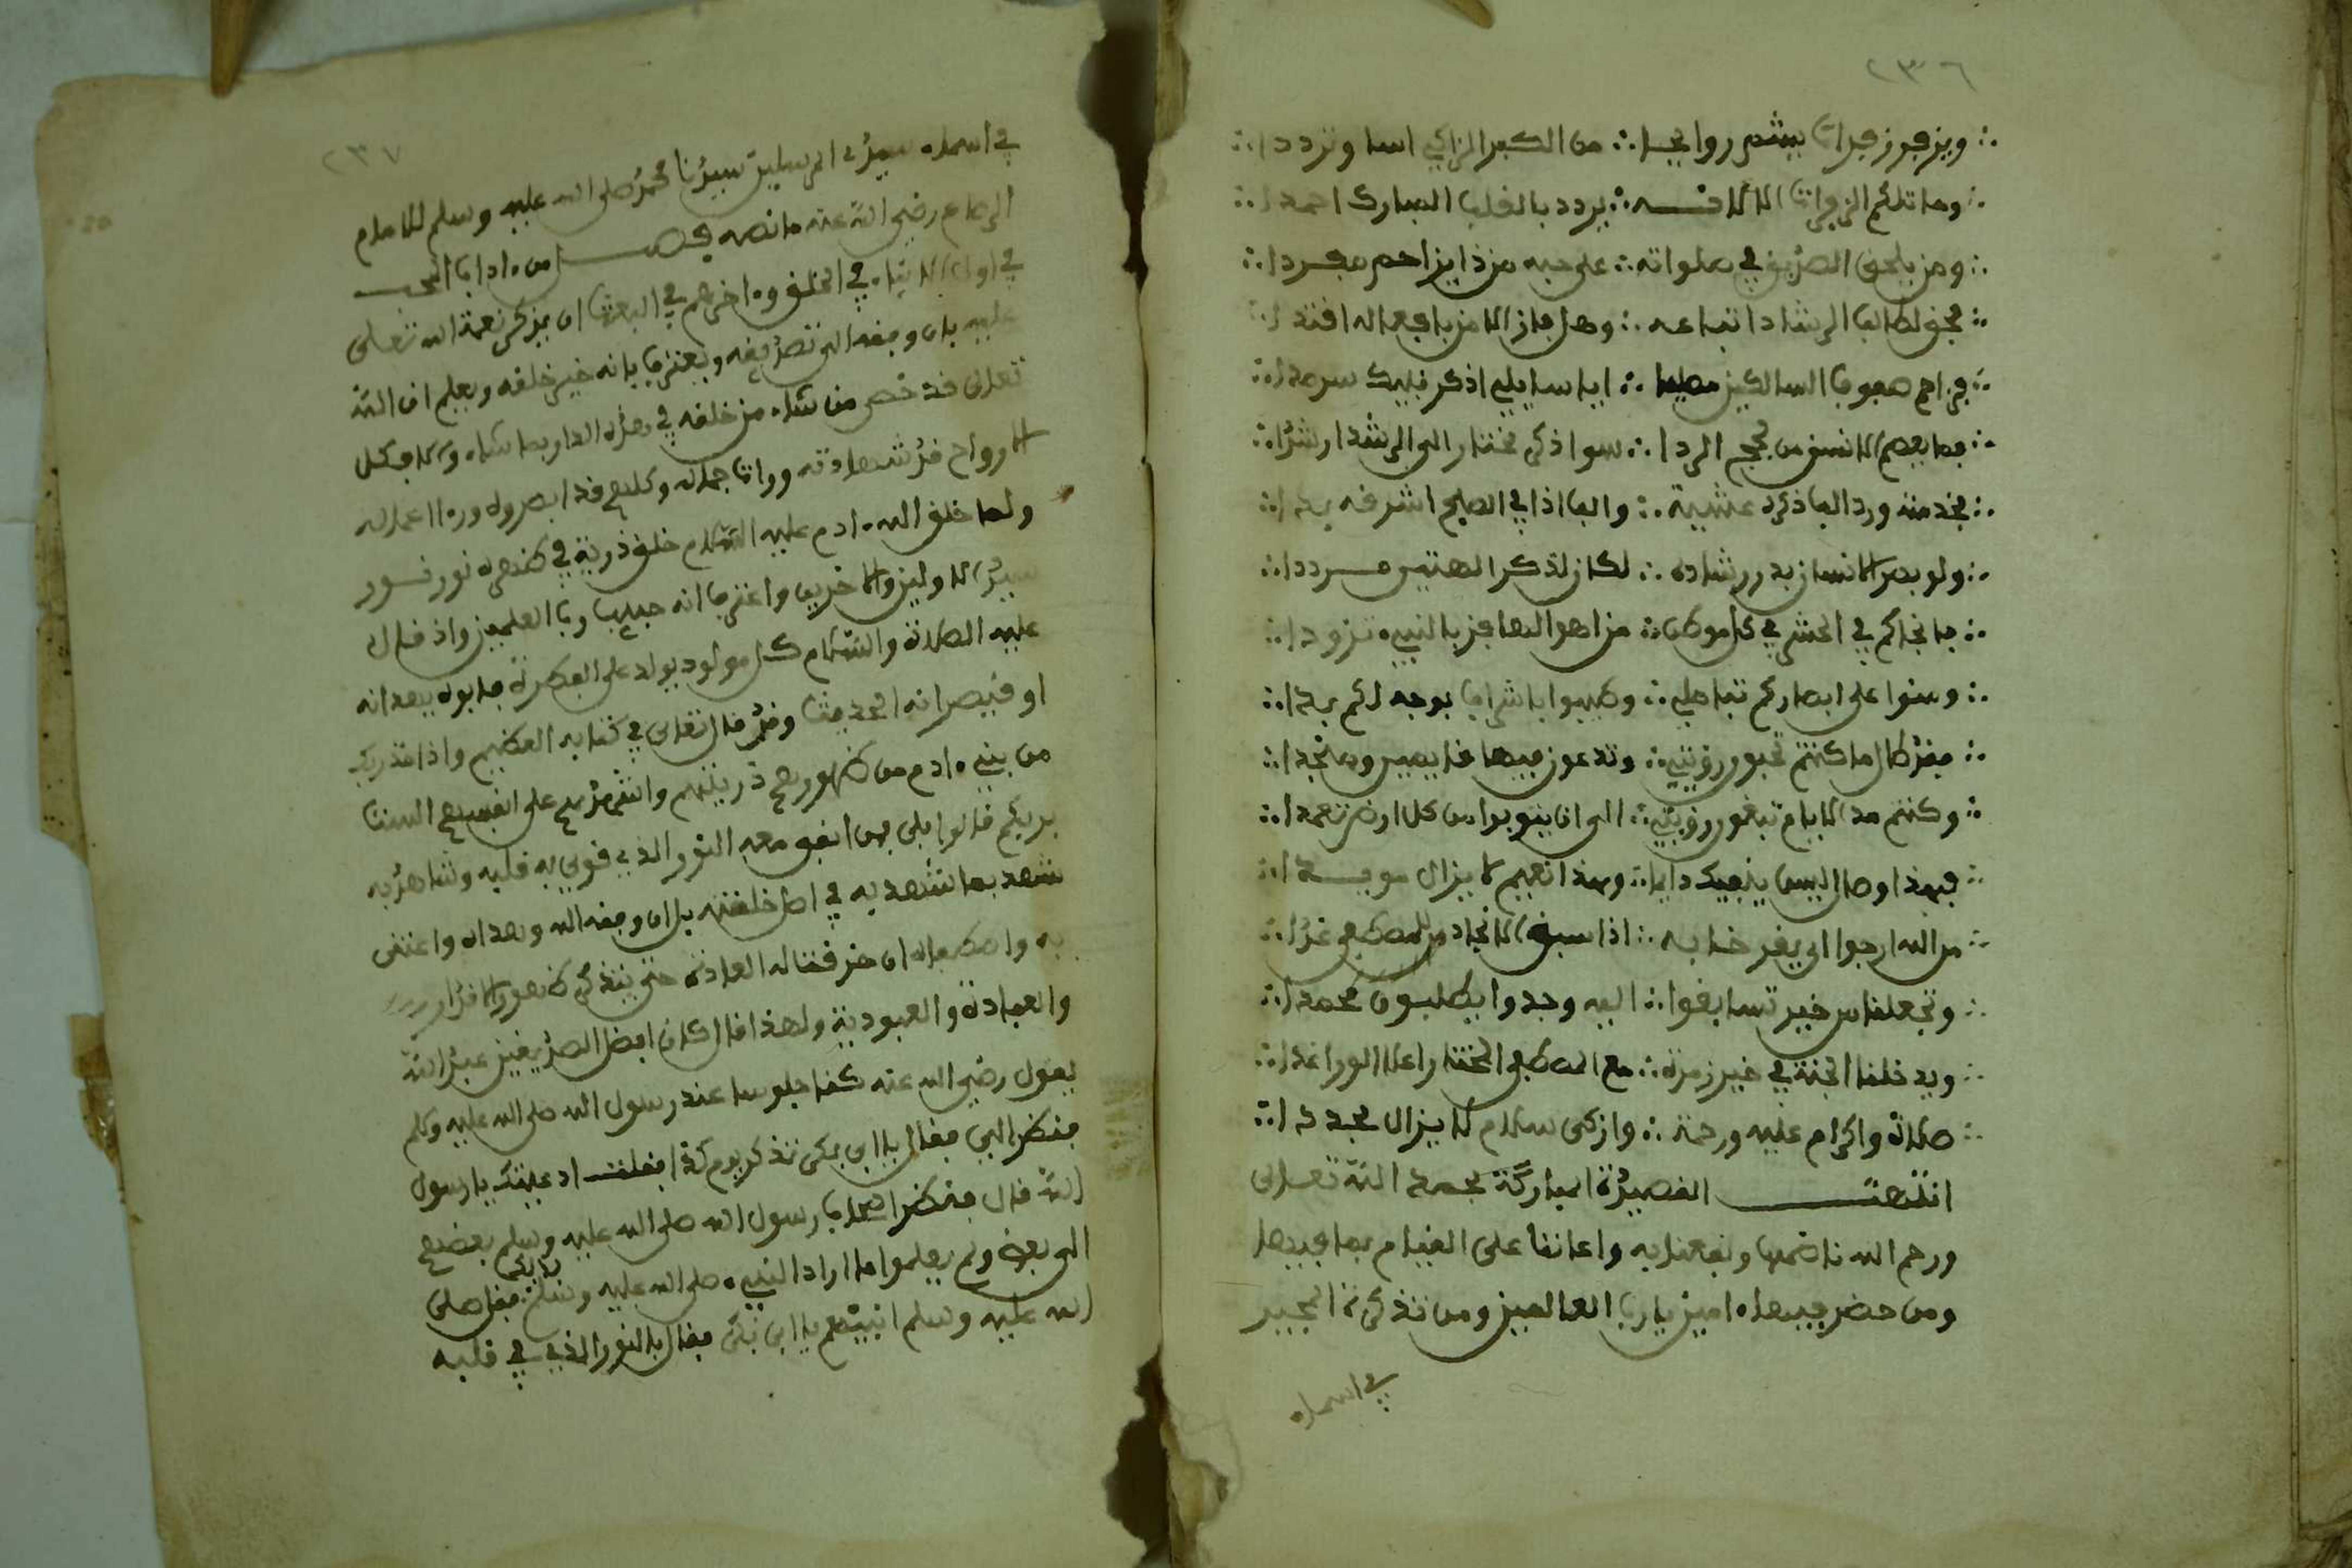 ٢٣٦
ويزفر زفرات يشم روايحا ∴ من الكبد الزاكي اسا وترددا
وما تلكم الزفرات الا لانسه ∴ يردد بالقلب المبارك احمدا
ومن يلحق الصديق في صلواته ∴ على حبه من ذا يزاحم مفردا
فحق لطالب الرشاد اتباعه ∴ وهل فاز الا من بافعاله اقتدا
فزاحم صفوف السالكين مصليا ∴ ايا سايلي اذكر نبيك سرمدا
فما يعصم الانسان من لجج الردا ∴ سوا ذكر مختار الى الرشد ارشدا
فخذ منه ورد الفا ذكره عشية ∴ والفا اذا في الصبح اشرقه بدا
ولو بصر الانسان بدر رشاده ∴ لكان لذكر الهتين مرددا
ما نجاكم في الحشر في كل موطن ∴ من اهوالها من بالنبيء تزودا
وسنوا على ابصاركم تفاصلي ∴ وطيبوا باشراف بوجه لكم بدا
فقد طال ما كنتم تحبون رؤيتي ∴ وتدعون فيها قايمين وسجدا
وكنتم مد الايام تبغون رؤيتي ∴ الى ان ينوبوا من كل ارض تعمدا
فهذا وصال ليس ينفيك دايما ∴ وهذا نعيم لا يزال مويدا
من الله ارجوا ان يقر خطابه ∴ اذا سبق الانجاد للمصطفى غدا
وتجعلنا من خير تسابقوا ∴ اليه وجدوا يطلبون محمدا
ويدخلنا الجنة في خير زمرة ∴ مع المصطفى المختار اعلا الورا غدا
صلاة واكرام عليه ورحمة ∴ وازكى سلام لا يزال مجددا
انتهت القصيدة المباركة بحمد الله تعالى
ورحم الله ناضمها ونفعنا به واعاننا على القيام بما فيها
ومن حضر فيها ءامين يا رب العالمين ومن تذكرة المحبين
في اسماء
٢٣٧
في اسماء سيد المرسلين سيدنا محمد صلى الله عليه وسلم للامام
الرصاع رضي الله عنه ما نصه فصل من ءاداب المحب
في اول الانبياء في الخلق وءاخرهم في البعث ان يذكر نعمة الله تعلى
عليه بان وفقه الى تصديقه ويعترف بانه خير خلقه ويعلم ان الله
تعلى قد خص من شاء من خلقه في هذه الدار بما شاء ولا فكل
الارواح قد شهادته ورات جماله وكلهم قد ابصروه وراا عماله
ولما خلق الله ءادم عليه السلام خلق ذرية في ظهره نور نور
سيد الاولين والاخرين واعترف انه حبيب رب العلمين واذ قال
عليه الصلاة والسلام كل مولود يولد على الفطرة فابوه يهودانه
او ينصرانه الحديث وقد قال تعلى في كتابه العظيم واذ اخذ ربك
من بني ءادم من ظهورهم ذريتهم واشهدهم على انفسهم الست
بربكم قالوا بلى فمن اتفق معه النور الذي قوي به قلبه وشاهد به
شهد بما شهد به في اصل خلقته بان وفقه الله وهداه واعتنى
به واصطفاه ان خرقت له العادة حتى يتذكر ظهور الاقرار
والعبادة والعبودية ولهذا قال كان افضل الصديقين عبد الله
يقول رضي الله عنه كنا جلوسا عند رسول الله صلى الله عليه وسلم
فنظر الي فقال يا ابى بكر تذكر يوم كذا فقلت اد عيتك يا رسول
الله قال فنظر اصحاب رسول الله صلى الله عليه وسلم بعضهم
الى بعض ولم يعلموا ما اراد النبيء صلى الله عليه وسلم بذلك فقال صلى
الله عليه وسلم انبيئهم يا ابى بكر فقال بالنور الذي في قلبه